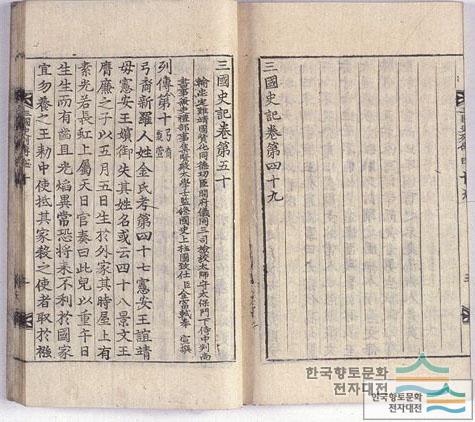 三國史記卷第四十九
三國史記卷第五十
輸忠定難靖國贊化同德功臣開府儀同三司檢校太師守太保門下侍中判尚
書事兼吏禮部事集賢殿大學士監修國史上柱國致仕臣金富軾奉 宣撰
列傳第十 弓裔 甄萱
弓裔新羅人姓金氏考第四十七憲安王誼靖
母憲安王嬪御失其姓名或云四十八景文王
膺廉之子以五月五日生於外家其時屋上有
素光若長虹上屬天日官奏曰此兒以重午日
生生而有齒且光焰異常恐將來不利於國家
宜勿養之王勅中使抵其家殺之使者取於襁
한국향토문화
전자대전
한국향토문화
전자대전